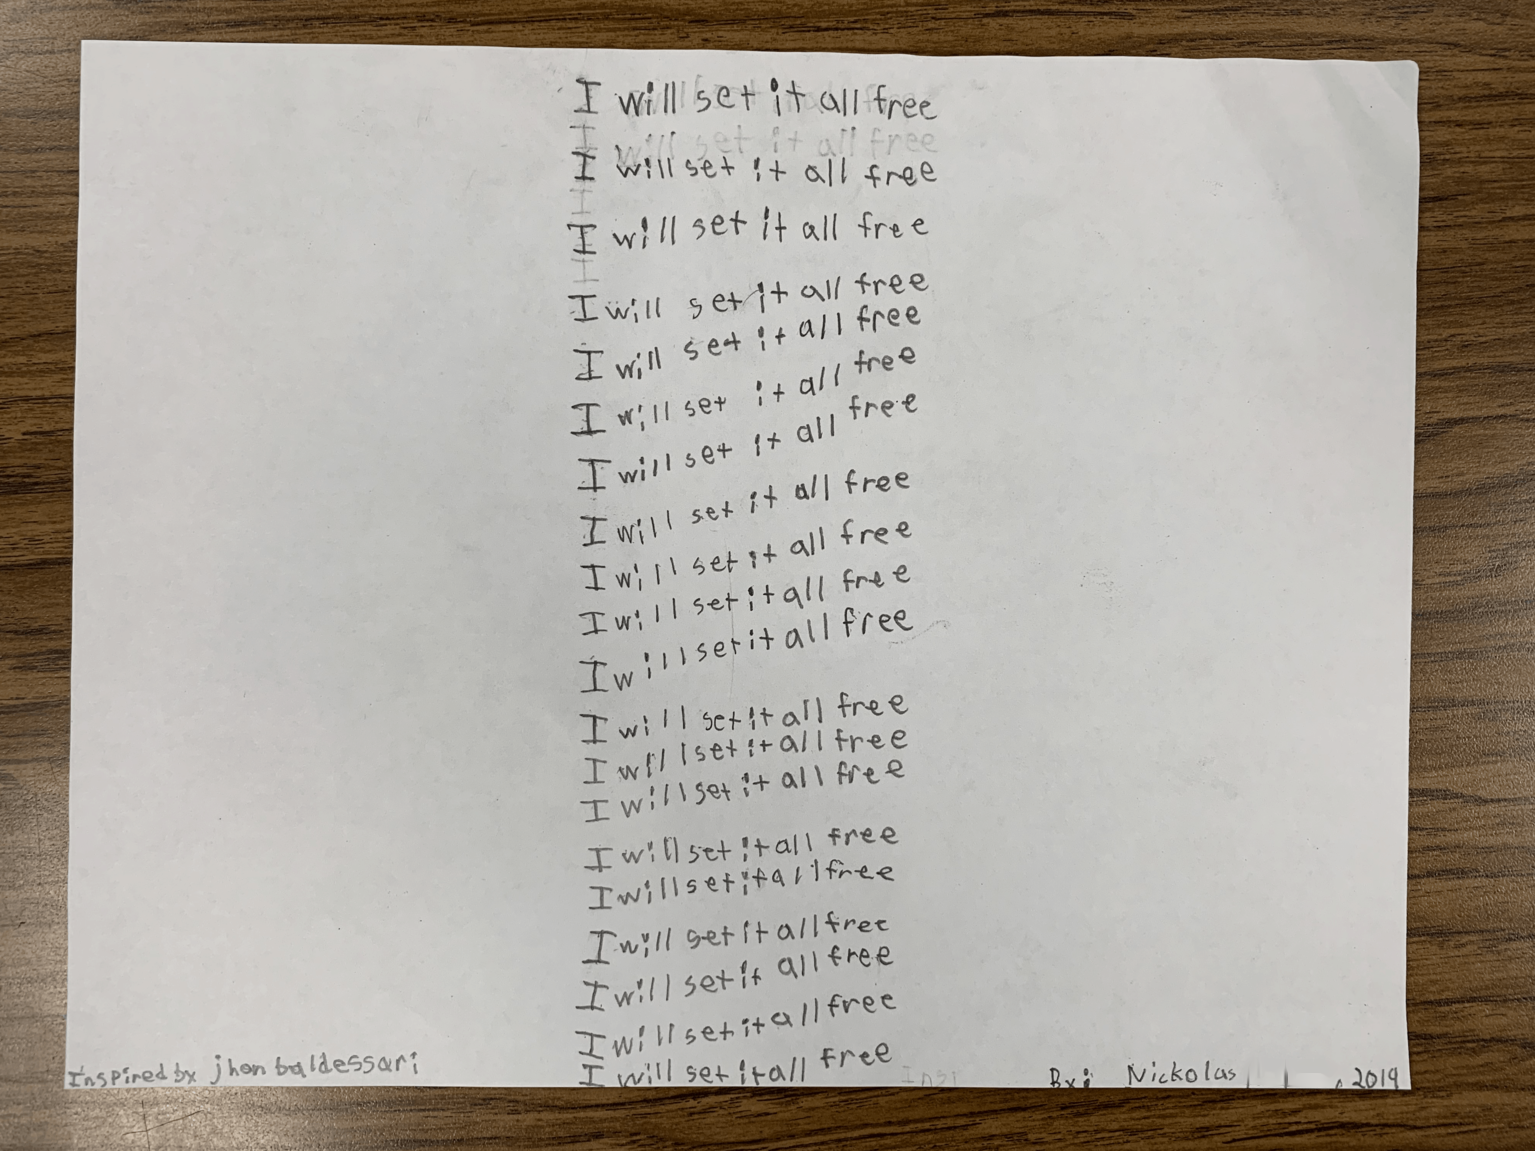 I will set it all free
I will set it all free
I will set it all free
I will set it all free
I will set it all free
I will set it all free
I will set it all free
I will set it all free
I will set it all free
I will set it all free
I will set it all free
I will set it all free
I will set it all free
I will set it all free
I will set it all free
I will set it all free
I will set it all free
I will set it all free
I will set it all free
I will set it all free
I will set it all free
Inspired by jhon baldessari
Insi
By: Nickolas , 2019